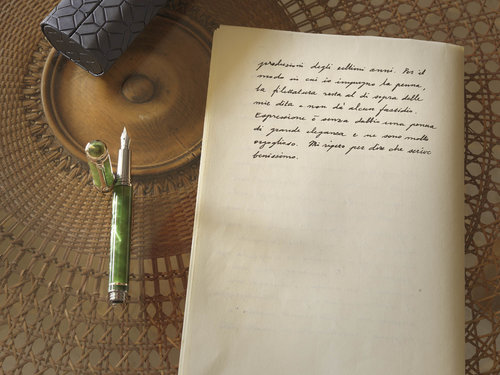 produzioni degli ultimi anni. Per il
modo in cui io impugno la penna,
la filettatura resta al di sopra delle
mie dita e non dà alcun fastidio.
Espressione è senza dubbio una penna
di grande eleganza e ne sono molto
orgoglioso. Mi ripeto per dire che scrive
benissimo.